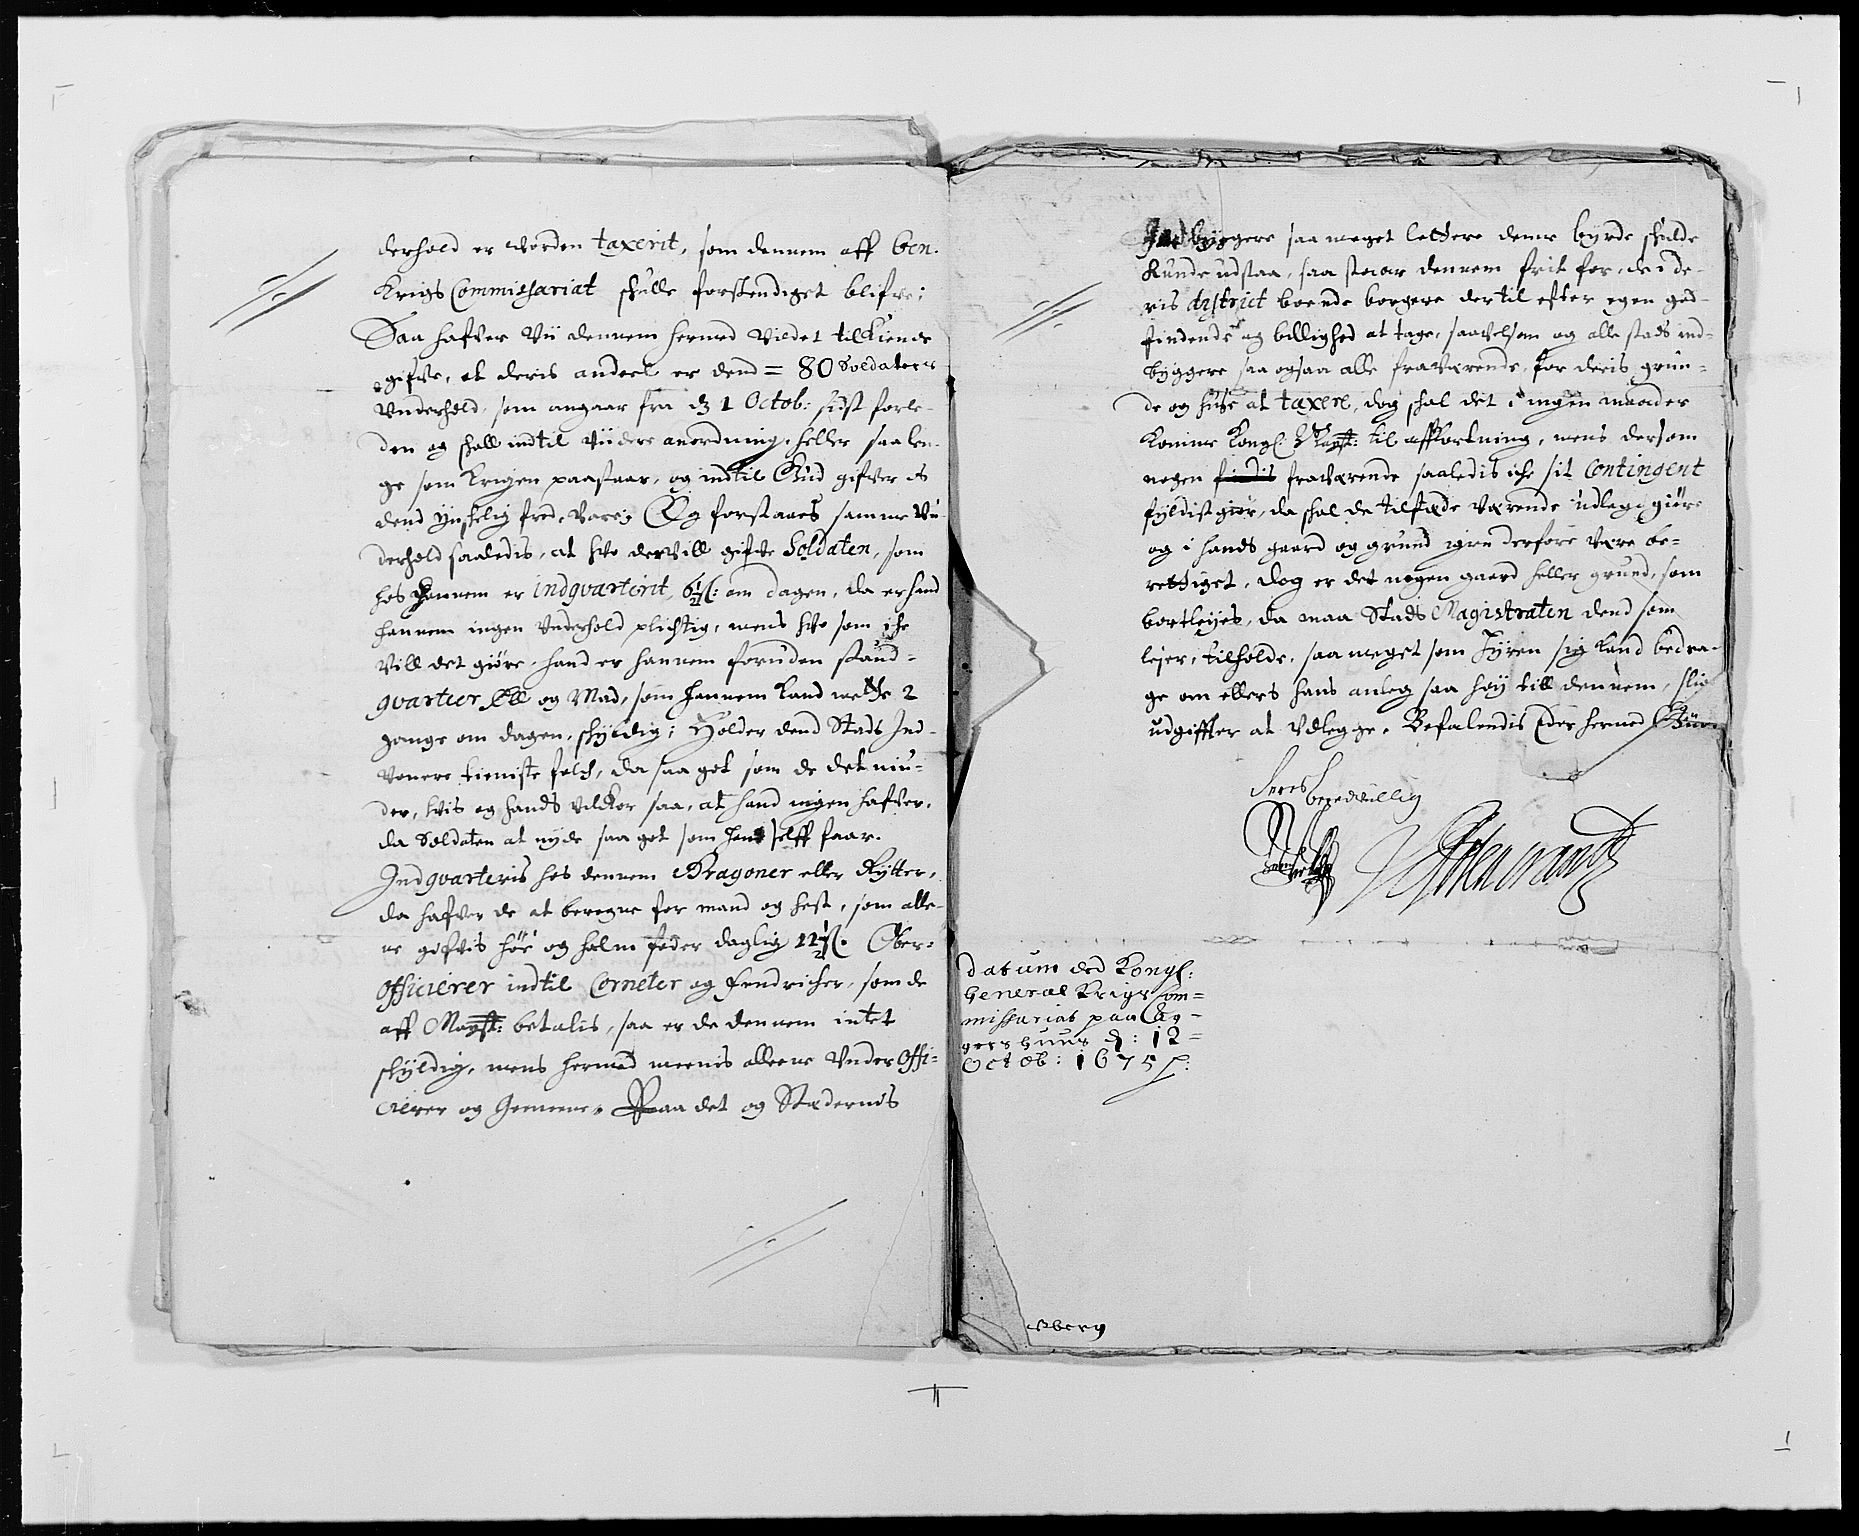 derhold er worden taxerit, som dennem aff Gen.
Krigs Commissariat skulle forstendiget blifve;
Saa hafver Vii dennem hermed Villet tilkiende
gifve, at deris andeel er dend = 80 Soldaters
Vnderhold, som angaar fra d 1 Octob: sist forle-
den og skall indtil Viidere anordning, heller saa len-
ge som krigen paastaar, og indtil Gud gifver os
dend ynskelig fred, Vare; Og forstaaes samme Vn-
derhold saaledis, at hvo der vill gifve Soldaten, som
hos hannem er indqvarterit, 6 ß: om dagen, da er hand
hannem ingen Vnderhold plichtig, mens hvo som iche
Vill det giøre, hand er hannem foruden stand-
qvarteer, Øll og Mad, som hannem kand mette 2
gange om dagen, skyldig; Holder dend Stads Ind-
vonere tieniste folch, da saa got som de det niu-
der, hvis og hands vilkor saa, at hand ingen hafver,
da Soldaten at nyde saa got som hand self faar.
Indqvarteris hos dennem Dragoner eller Rytter,
da hafver de at beregne for mand og hest, som alle-
ne gifvis høe og halm foder daglig 12 ß. Ober-
Officierer indtil Corneter og Fendricher, som de
aff Mayst: betalis, saa er de dennem intet
skyldig, mens hermed meenis alleene Vnder Offi-
cierer og Gemene. Paa det og Stædernis
Indbyggere saa meget lettere denne byrde skulde
kunde udstaa, saa staar dennem frit for, de i de-
ris district boende borgere dertil efter egen got-
findende og billighed at tage, saavelsom og alle stads ind-
byggere saa ogsaa alle fraværende, for deris grun-
de og huse at taxere, dog skal det i ingen maader
komme Kongl: Mayst: til affkortning, mens dersom
nogen findis fraværende saaledis iche sit Contingent
fyldist giør, da skal de tilstæde værende udleg giøre
og i hands gaard og grund igien derfore være be-
rettiget, dog er det nogen gaard heller grund, som
bortleyes, da maa Stads Magistraten dend som
leier, tilholde, saa meget som Hyren sig kand bedra-
ge om ellers hans anleg saa høy till dennem, slig
udgiffter at Vdlegge. Befalendis Eder hermed Gud.
Deres beredvillig
datum ded Kongl:
General Krigs Com=
missariat paa Ag-
gershuus d: 12=
Octob: 1675